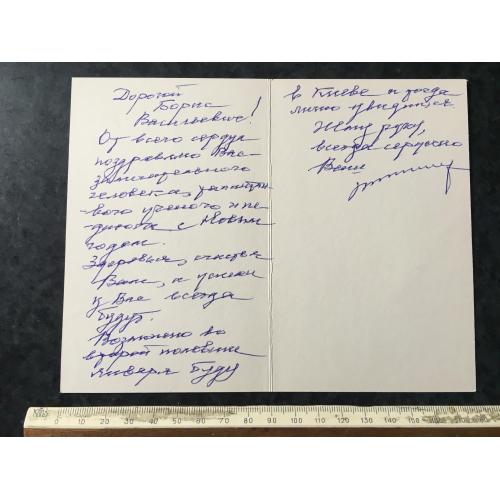 Дорогой
Борис
Васильевич!
От всего сердца
поздравляю Вас –
замечательного
человека, талантли-
вого ученого и пе-
дагога с Новым
годом.
Здоровья, счастья
Вам, а успехи
у Вас всегда
будут.
Возможно во
второй половине
января буду
в Киеве и тогда
лично увидимся
Жму руку,
всегда сердечно
Ваш
0 10 20 30 40 50 60 70 80 90 100 110 120 130 140 150 160 170